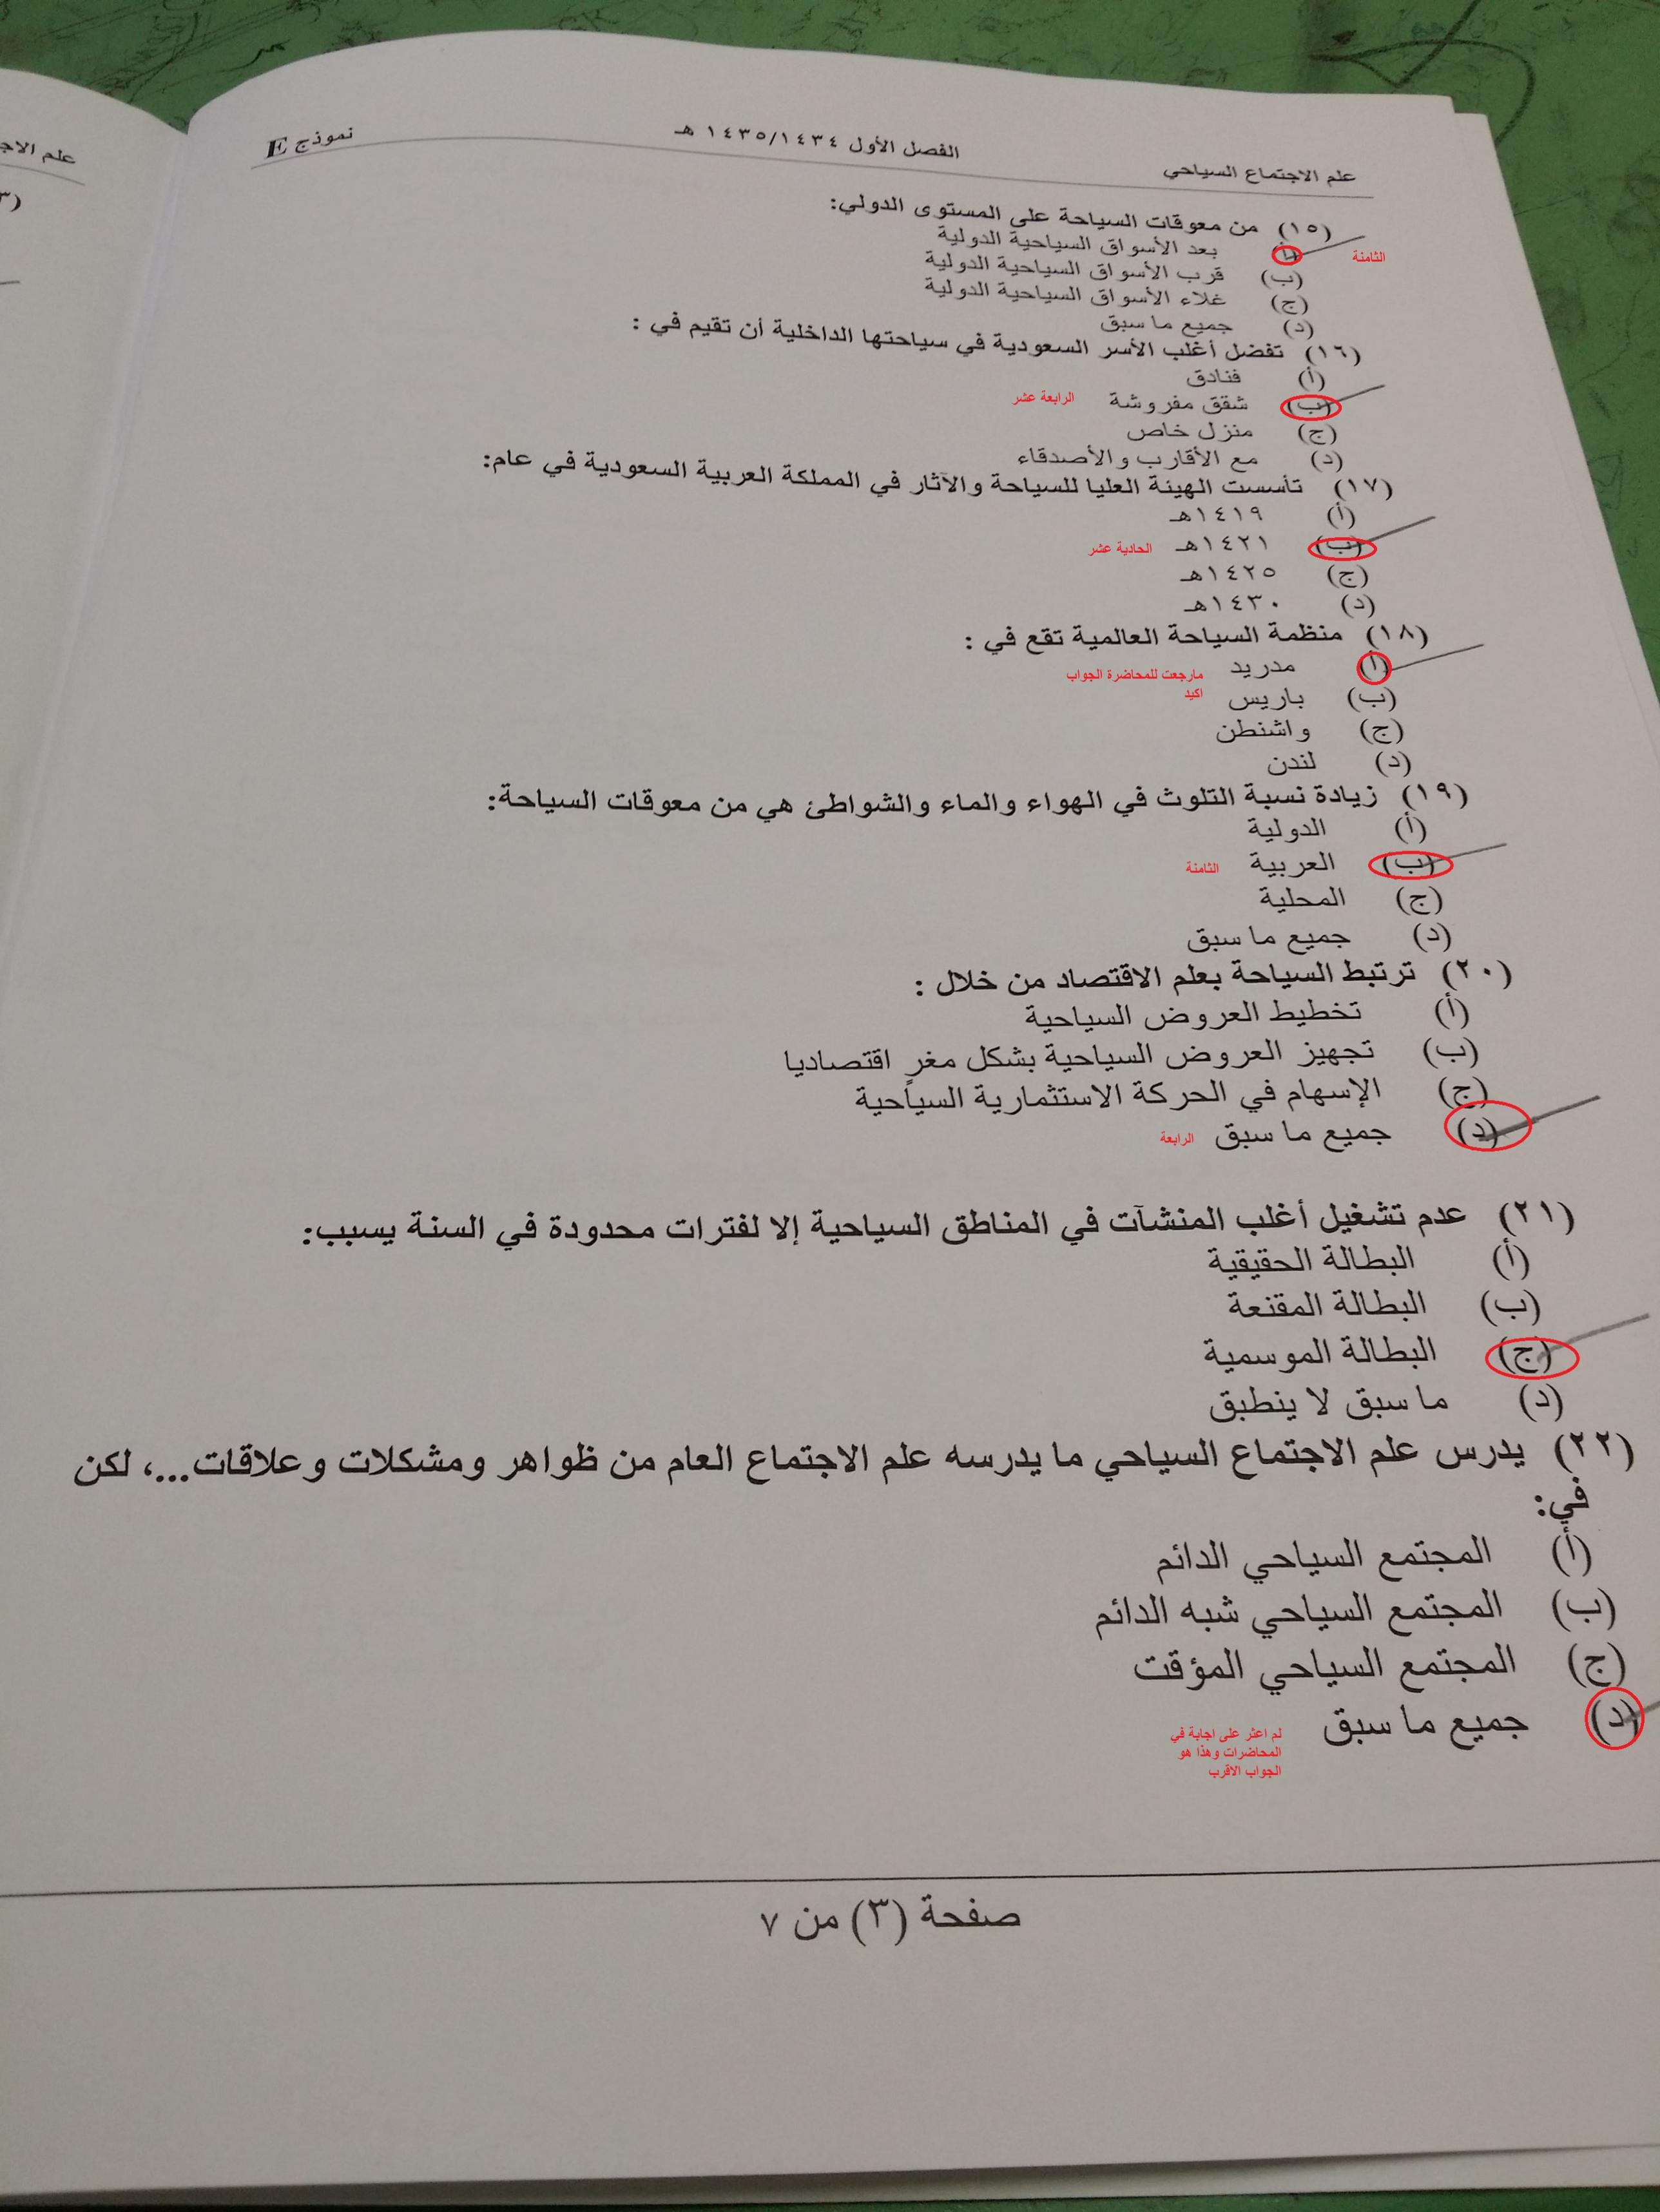 علم الاجتماع السياحي الفصل الأول ١٤٣٥/١٤٣٤ هـ نموذج E
(١٥) من معوقات السياحة على المستوى الدولي:
(أ) بعد الأسواق السياحية الدولية الثامنة
(ب) قرب الأسواق السياحية الدولية
(ج) غلاء الأسواق السياحية الدولية
(د) جميع ما سبق
(١٦) تفضل أغلب الأسر السعودية في سياحتها الداخلية أن تقيم في :
(أ) فنادق
(ب) شقق مفروشة الرابعة عشر
(ج) منزل خاص
(د) مع الأقارب والأصدقاء
(١٧) تأسست الهيئة العليا للسياحة والآثار في المملكة العربية السعودية في عام:
(أ) ١٤١٩هـ
(ب) ١٤٢١هـ الحادية عشر
(ج) ١٤٢٥هـ
(د) ١٤٣٠هـ
(١٨) منظمة السياحة العالمية تقع في :
(أ) مدريد مارجعت للمحاضرة الجواب
اكيد
(ب) باريس
(ج) واشنطن
(د) لندن
(١٩) زيادة نسبة التلوث في الهواء والماء والشواطئ هي من معوقات السياحة:
(أ) الدولية
(ب) العربية الثامنة
(ج) المحلية
(د) جميع ما سبق
(٢٠) ترتبط السياحة بعلم الاقتصاد من خلال :
(أ) تخطيط العروض السياحية
(ب) تجهيز العروض السياحية بشكل مغرٍ اقتصاديا
(ج) الإسهام في الحركة الاستثمارية السياحية
(د) جميع ما سبق الرابعة
(٢١) عدم تشغيل أغلب المنشآت في المناطق السياحية إلا لفترات محدودة في السنة يسبب:
(أ) البطالة الحقيقية
(ب) البطالة المقنعة
(ج) البطالة الموسمية
(د) ما سبق لا ينطبق
(٢٢) يدرس علم الاجتماع السياحي ما يدرسه علم الاجتماع العام من ظواهر ومشكلات وعلاقات...، لكن
في:
(أ) المجتمع السياحي الدائم
(ب) المجتمع السياحي شبه الدائم
(ج) المجتمع السياحي المؤقت
(د) جميع ما سبق
لم اعثر على اجابة في
المحاضرات وهذا هو
الجواب الاقرب
صفحة (٣) من ٧